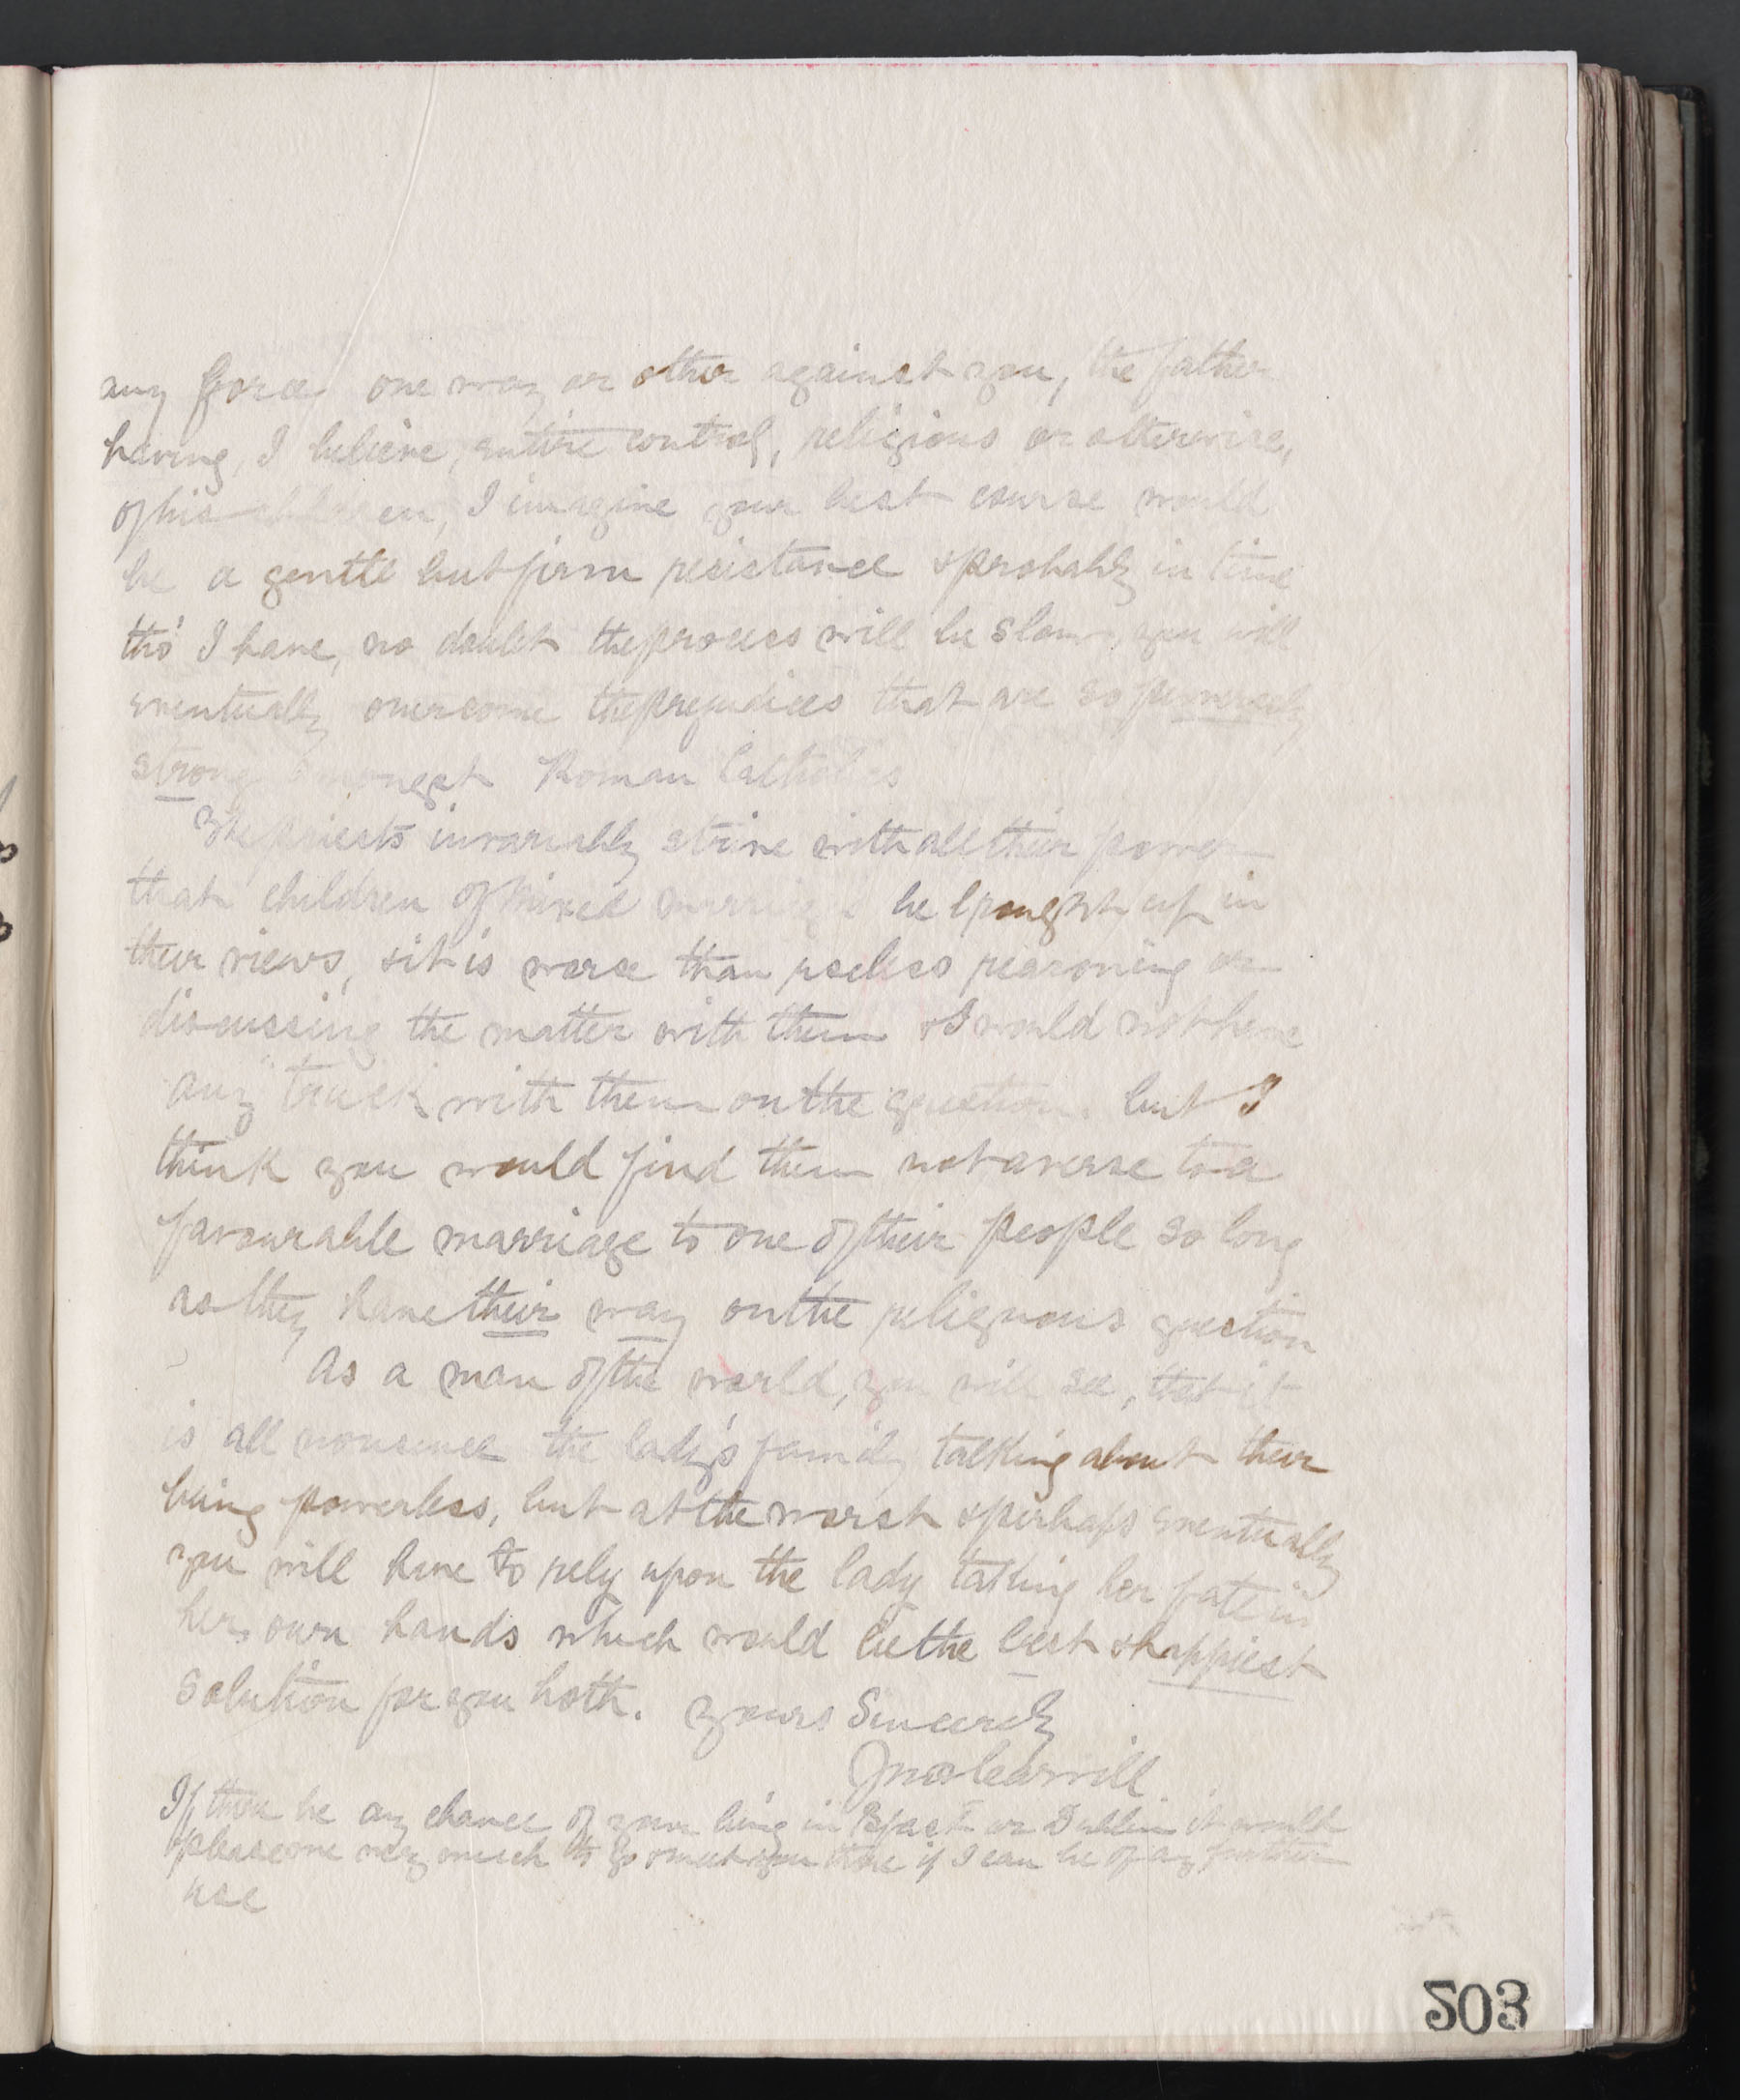 any force one way or other against you, the father
having, I believe, entire control, religious or otherwise,
of his children, I imagine your best course would
be a gentle but firm resistance & probably in time
tho' I have, no doubt the process will be slow, you will
eventually overcome the prejudices that are so perversely
strong amongst Roman Catholics
The priests invariably strive with all their power
that children of mixed marriages be brought up in
their views, & it is worse than useless reasoning or
discussing the matter with them & I would not have
any "truck" with them on the question. but I
think you would find them not averse to a
favourable marriage to one of their people so long
as they have their way on the religious question
As a man of the world, you will see, that it
is all nonsense the lady's family talking about their
being powerless, but at the worst & perhaps eventually
you will have to rely upon the lady taking her fate in
her own hands which would be the best & happiest
solution for you both. Yours Sincerely
Jno Carvill
If there be any chance of your being in Bfast or Dublin it would
please me very much to go & meet you there if I can be of any further
use
203